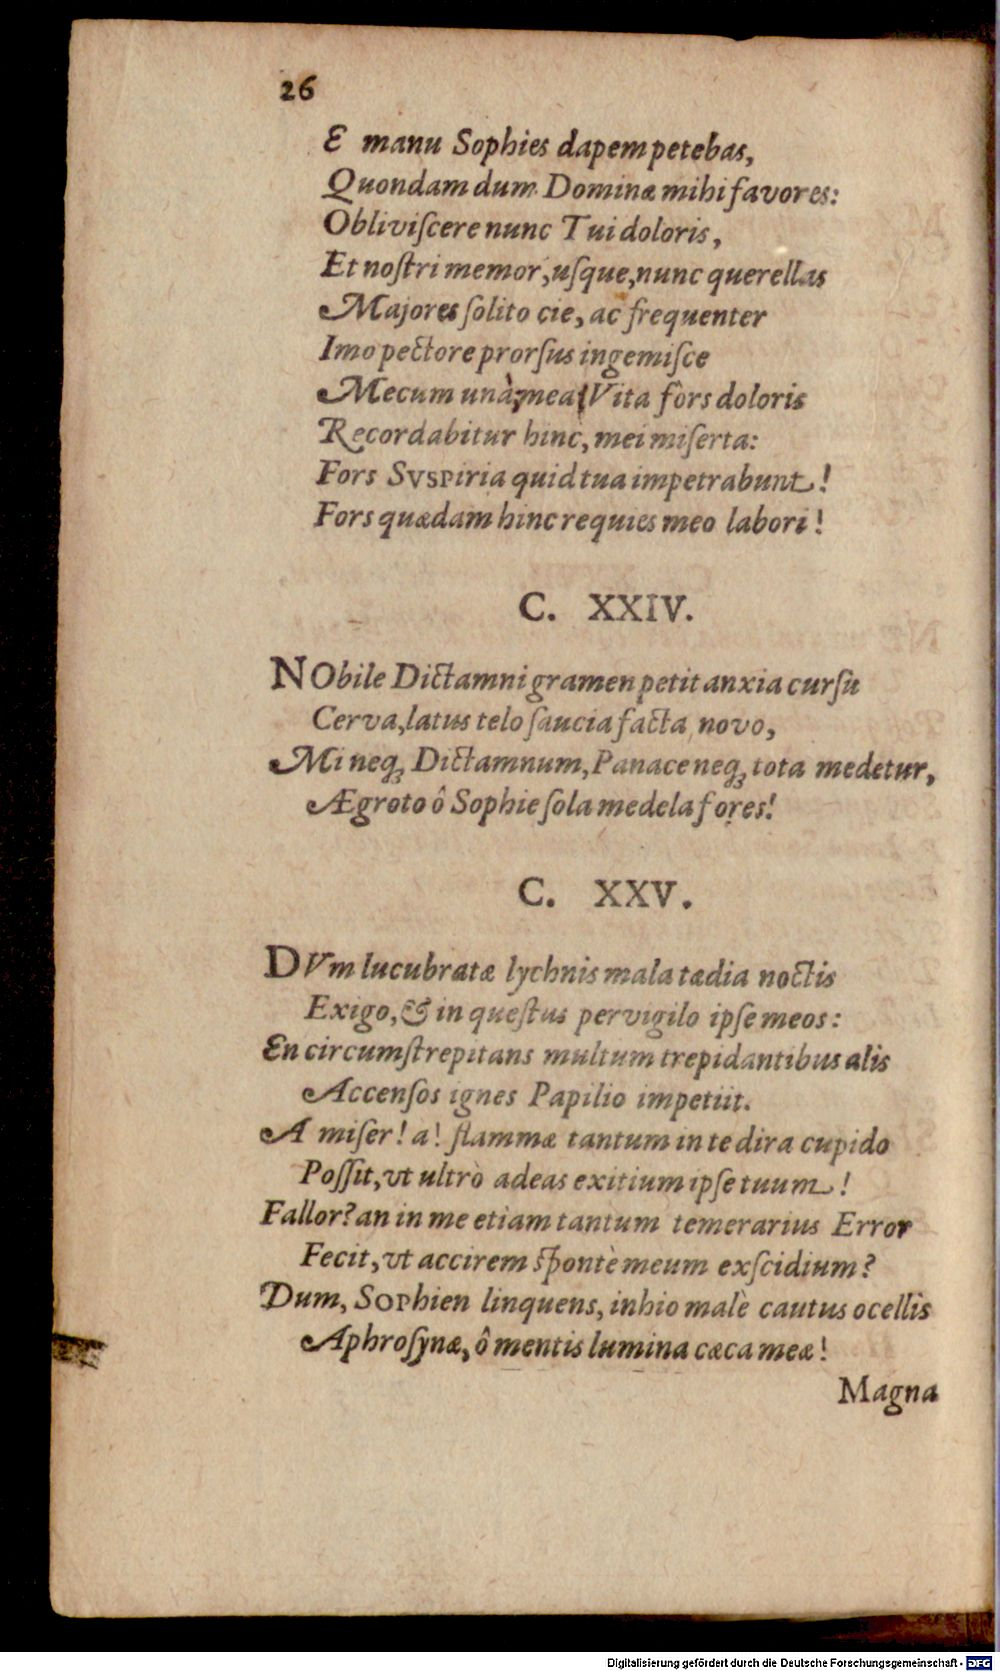 26
E manu Sophies dapem petebas,
Quondam dum Dominæ mihi favores:
Obliviſcere nunc Tui doloris,
Et noſtri memor, uſque, nunc querellas
Majores ſolito cie, ac frequenter
Imo pectore prorſus ingemiſce
Mecum unà, mea Vita fors doloris
Recordabitur hinc, mei miſerta:
Fors SVSPiria quid tua impetrabunt!
Fors quædam hinc requies meo labori!
C. XXIV.
NObile Dictamni gramen petit anxia curſu
Cerva, latus telo ſaucia facta novo,
Mi neq; Dictamnum, Panace neq; tota medetur,
Ægroto ô Sophie ſola medela fores!
C. XXV.
DVm lucubratæ lychnis mala tædia noctis
Exigo, & in queſtus pervigilo ipſe meos:
En circumſtrepitans multum trepidantibus alis
Accenſos ignes Papilio impetiit.
A miſer! a! flammæ tantum in te dira cupido
Poſſit, vt ultrò adeas exitium ipſe tuum!
Fallor? an in me etiam tantum temerarius Error
Fecit, vt accirem ſpontè meum exſcidium?
Dum, SOPhien linquens, inhio malè cautus ocellis
Aphroſynæ, ô mentis lumina cæca meæ!
Magna
Digitalisierung gefördert durch die Deutsche Forschungsgemeinschaft - DFG